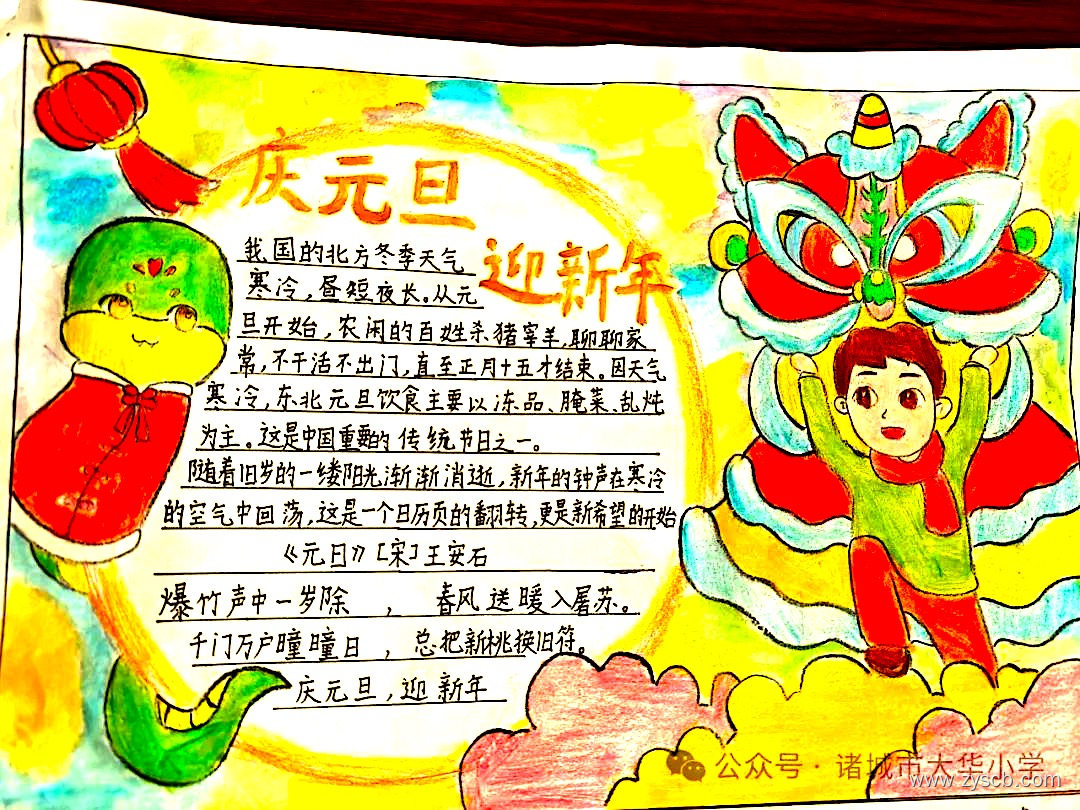 庆元旦
迎新年
我国的北方冬季天气
寒冷,昼短夜长。从元
旦开始,农闲的百姓杀猪宰羊,聊聊家
常,不干活不出门,直至正月十五才结束。因天气
寒冷,东北元旦饮食主要以冻品、腌菜、乱炖
为主。这是中国重要的传统节日之一。
随着旧岁的一缕阳光渐渐消逝,新年的钟声在寒冷
的空气中回荡,这是一个日历页的翻转,更是新希望的开始
《元日》[宋]王安石
爆竹声中一岁除,春风送暖入屠苏。
千门万户曈曈日,总把新桃换旧符。
庆元旦,迎新年
公众号·诸城市大华小学
www.zyscb.com